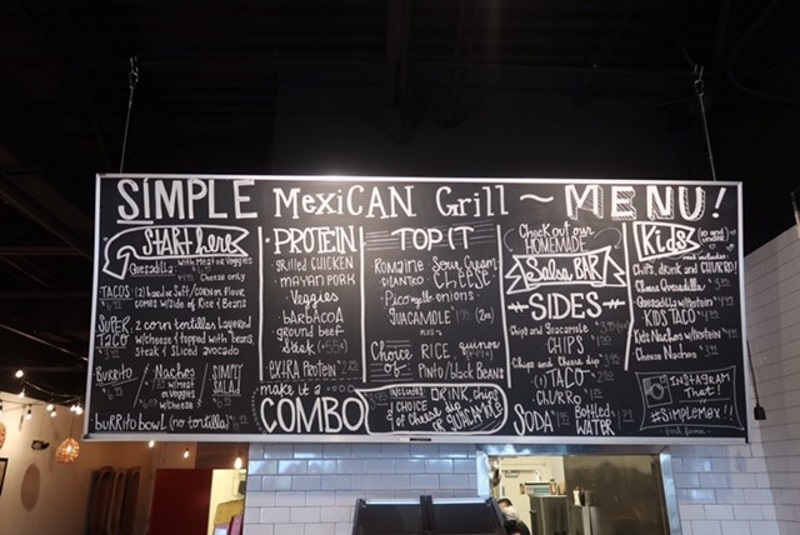 SIMPLE MexiCAN Grill ~ MENU!
START here
Quesadilla: with Meat or Veggies
Cheese only
TACOS (2) hard or Soft/CORN or FLOUR
comes w/side of Rice & Beans
SUPER TACO 2 corn tortillas Layered
w/cheese & topped with beans,
Steak & Sliced avocado
BURRITO
Nachos
w/Meat
or Veggies
w/Cheese
SIMPLY
SALAD
BURRITO bowl (no tortilla)
PROTEIN
Grilled CHICKEN
MAYAN PORK
Veggies
BARBACOA
ground beef
Steak
EXTRA PROTEIN
TOP IT
Romaine Sour Cream
CILANTRO CHEESE
Pico onions
GUACAMOLE
Choice of
RICE, quinoa
Pinto/black Beans
make it a
COMBO
includes DRINK, chips
& CHOICE
of cheese dip
or GUACAMOLE
Check out our
HOMEMADE
Salsa BAR
SIDES
Chips and Guacamole
CHIPS
Chips and Cheese dip
(1) TACO
CHURRO
SODA
Bottled
WATER
Kids
(10 and under)
Chips, drink and CHURRO!
Cheese Quesadilla
Quesadilla w/Protein
KIDS TACO
Kids Nachos w/Protein
Cheese Nachos
INSTAGRAM
That!
#SimpleMex!!